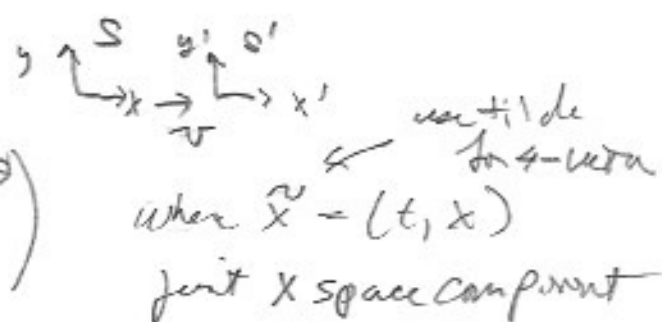 y S y' S'
x → x'
v
use tilde
for 4-vector
)
where x̃ = (t, x)
just x space component